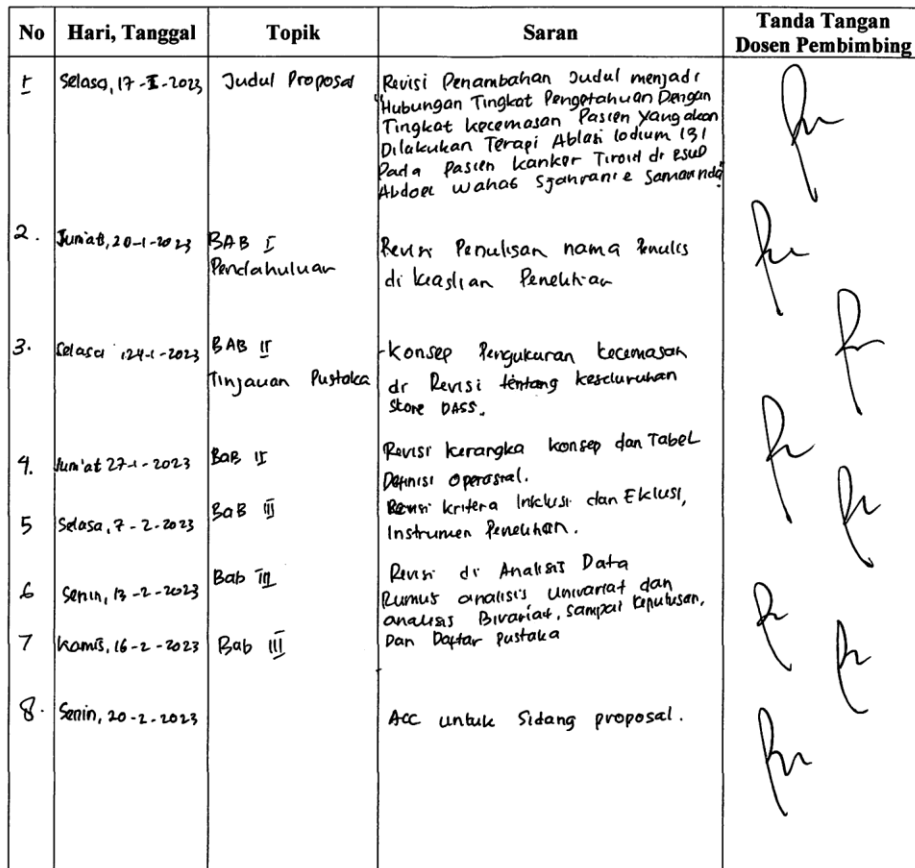 No Hari, Tanggal Topik Saran Tanda Tangan Dosen Pembimbing
1 Selasa, 17-I-2023 Judul Proposal Revisi Penambahan Judul menjadi
"Hubungan Tingkat Pengetahuan Dengan
Tingkat kecemasan Pasien Yang akan
Dilakukan Terapi Ablasi Iodium 131
Pada Pasien Kanker Tiroid di RSUD
Abdoel Wahab Sjahranie Samarinda"
2. Jum'at, 20-1-2023 BAB I Revisi Penulisan nama Penulis
Pendahuluan di keaslian Penelitian
3. Selasa, 24-1-2023 BAB II - Konsep Pengukuran kecemasan
Tinjauan Pustaka di Revisi tentang keseluruhan
Skore DASS.
4. Jum'at 27-1-2023 BaB II Revisi kerangka konsep dan Tabel
Definisi operasional.
5 Selasa, 7-2-2023 BaB III Revisi kritera Inklusi dan Eklusi,
Instrumen Penelitian.
6 Senin, 13-2-2023 Bab III Revisi di Analisis Data
Rumus analisis Univariat dan
analisis Bivariat, sampai keputusan,
7 Kamis, 16-2-2023 Bab III Dan Daftar pustaka
8. Senin, 20-2-2023 Acc untuk Sidang proposal.